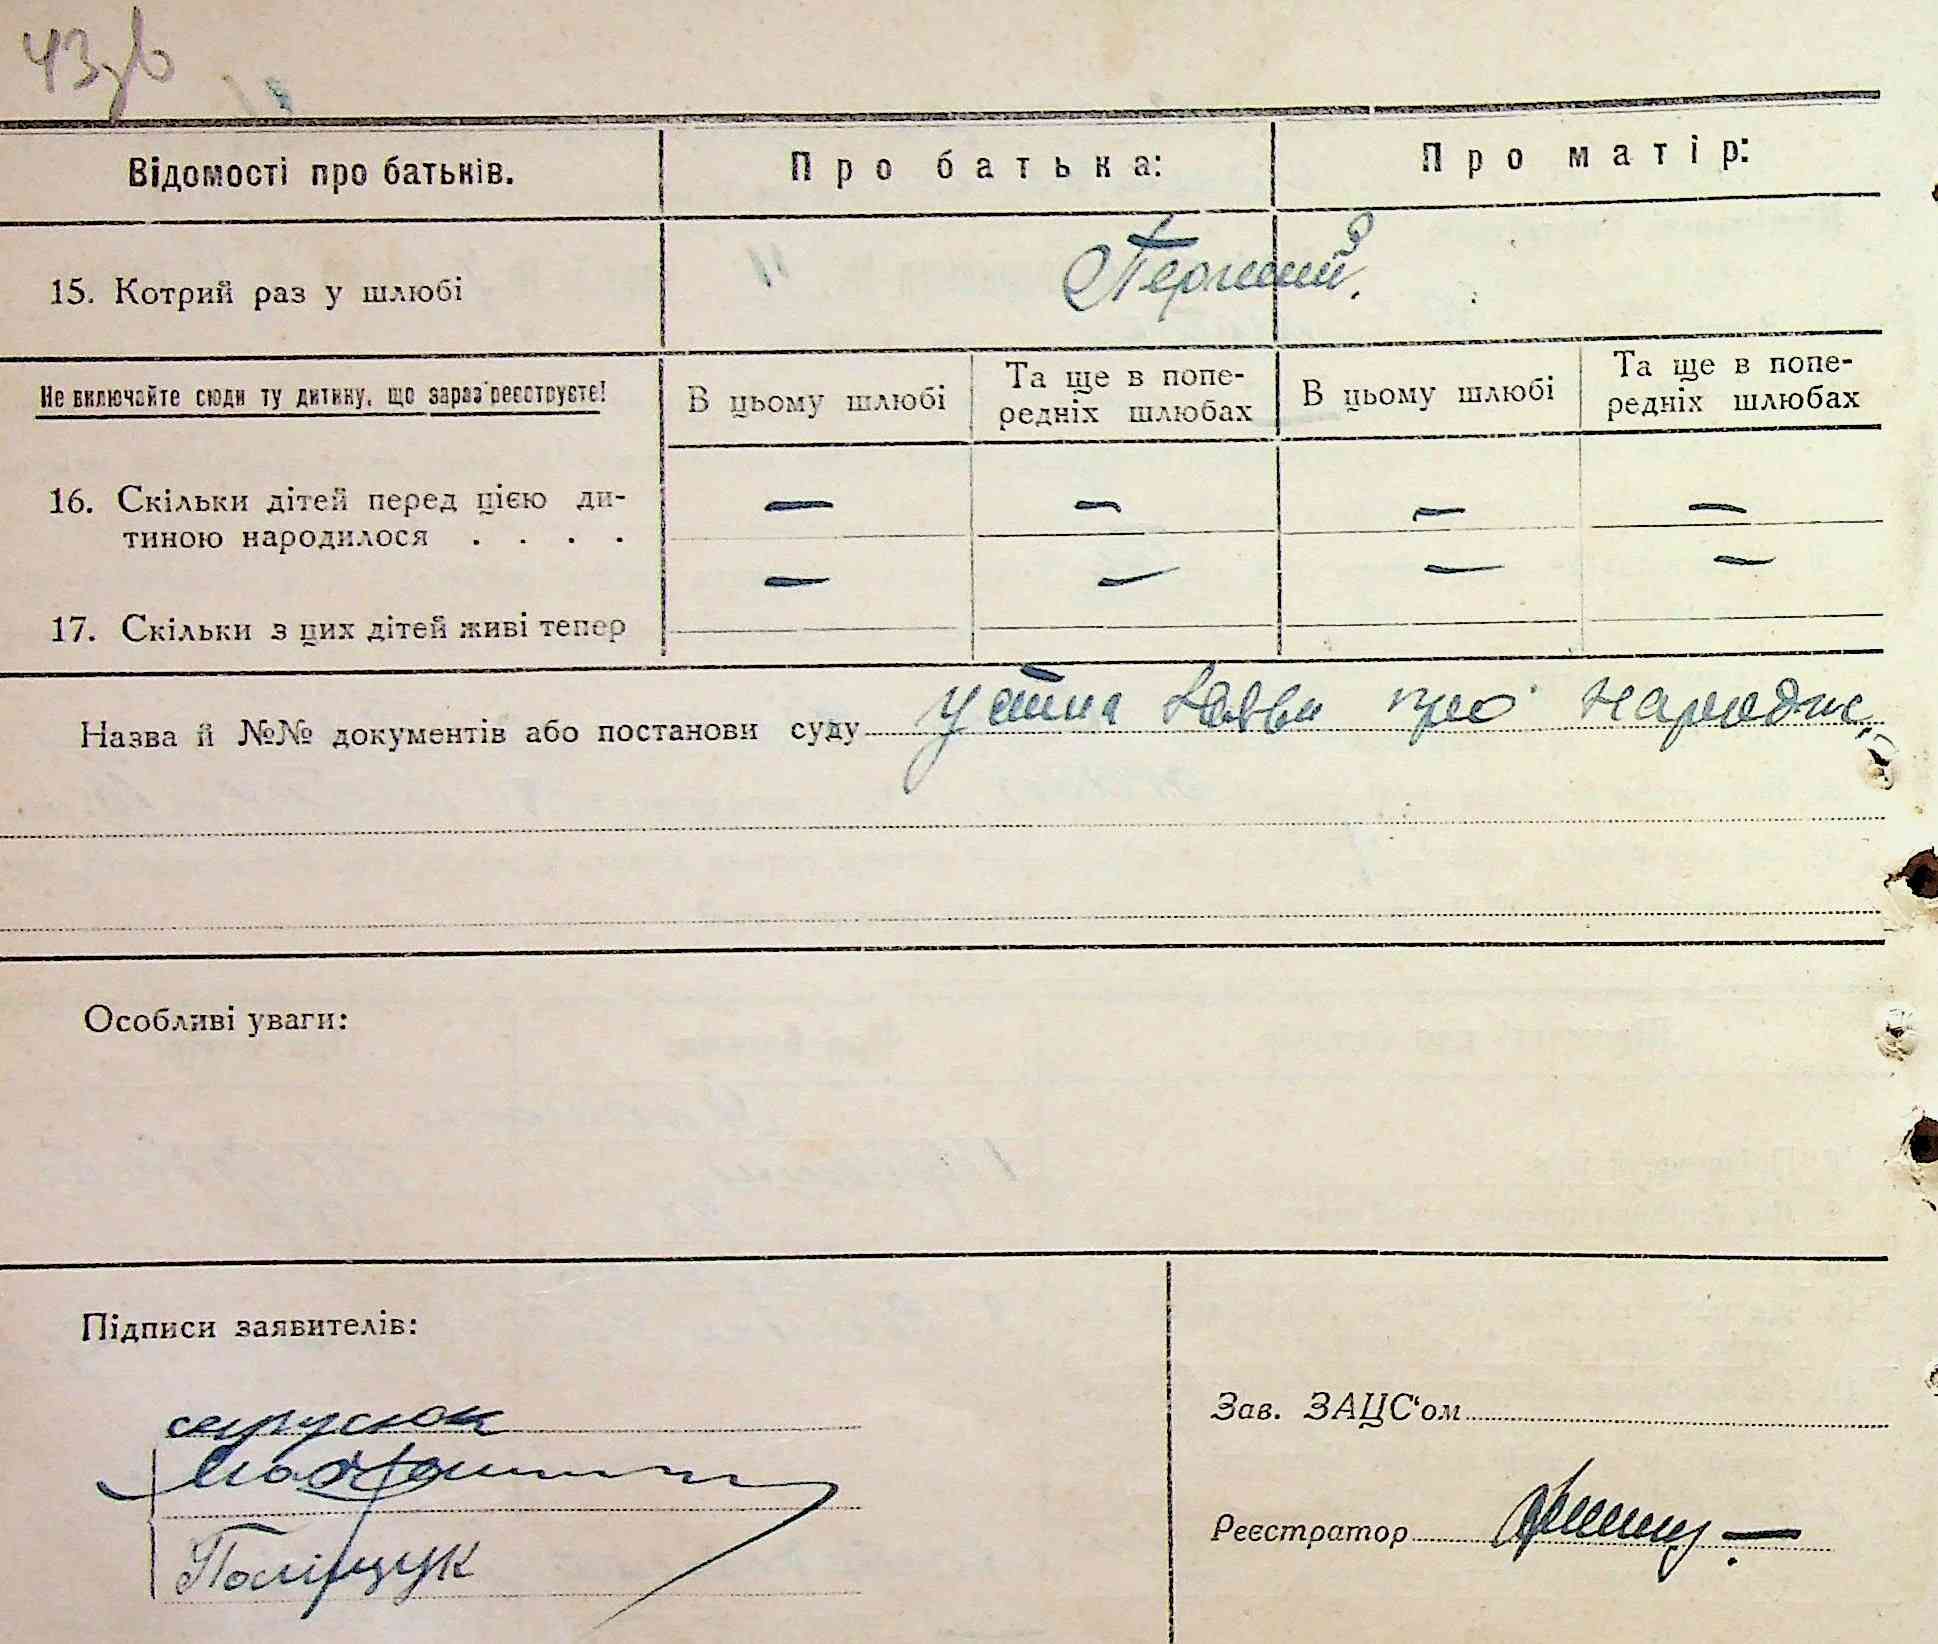 43зв
Відомості про батьків.
Про батька:
Про матір:
15. Котрий раз у шлюбі
Перший.
Не включайте сюди ту дитину, що зараз реєструєте!
В цьому шлюбі
Та ще в попе-
редніх шлюбах
В цьому шлюбі
Та ще в попе-
редніх шлюбах
16. Скільки дітей перед цією ди-
тиною народилося . . . .
— — — —
17. Скільки з цих дітей живі тепер
— — — —
Назва й №№ документів або постанови суду Устна заява про народж.
Особливі уваги:
Підписи заявителів:
Поліщук
Зав. ЗАЦС'ом
Реєстратор